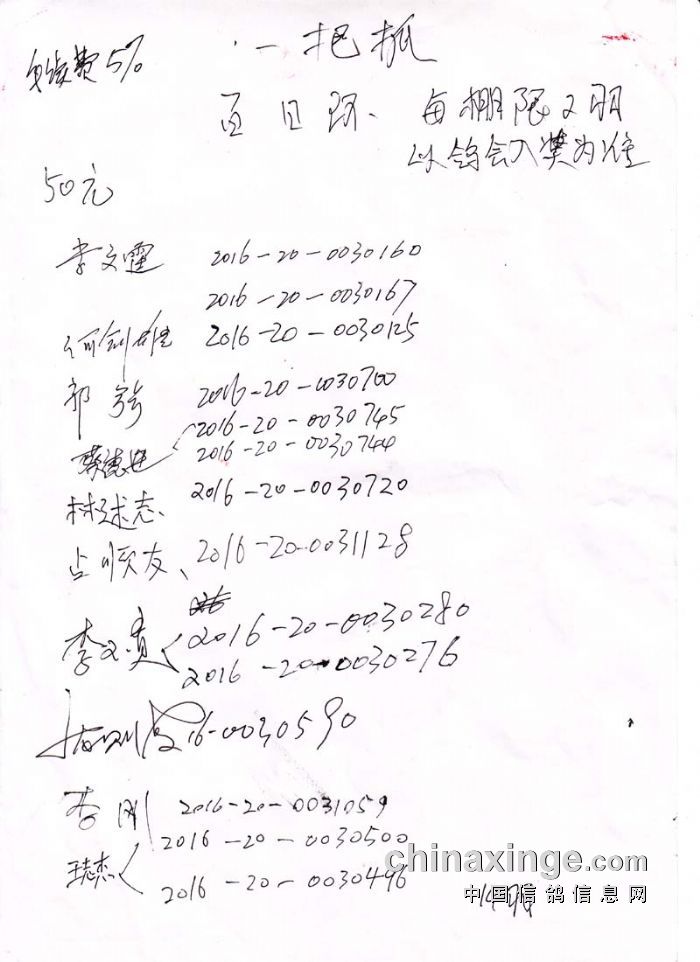 手续费5%
一把抓
百日环、每棚限2羽
以鸽会入奖为准
50元
李文霆 2016-20-0030160
2016-20-0030167
何剑雄 2016-20-0030125
郭 2016-20-0030700
2016-20-0030745
蔡德 2016-20-0030744
林球志、 2016-20-0030720
占顺友、 2016-20-0031128
李文勇 2016-20-0030280
2016-20-0030276
16-0030590
李刚 2016-20-0031059
2016-20-0030500
王志杰 2016-20-0030496
chinaxinge.com
中国信鸽信息网